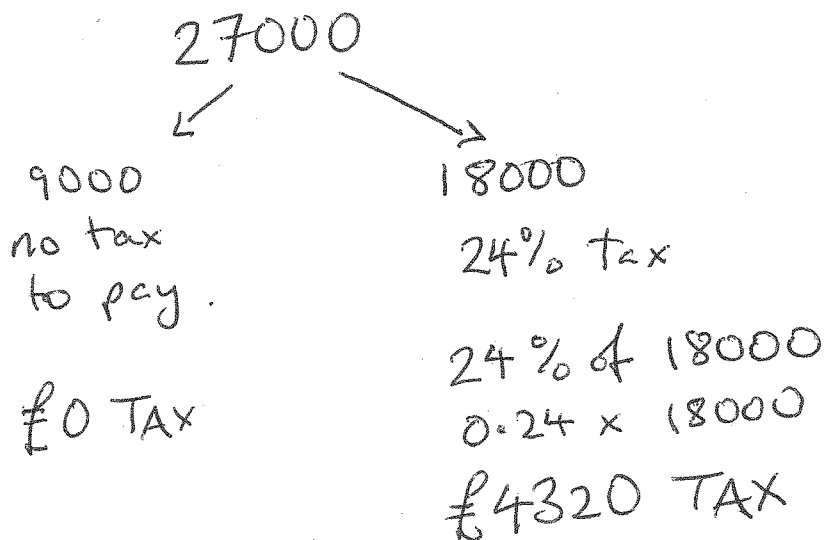 27000
9000
no tax
to pay.
£0 TAX
18000
24% tax
24% of 18000
0.24 x 18000
£4320 TAX